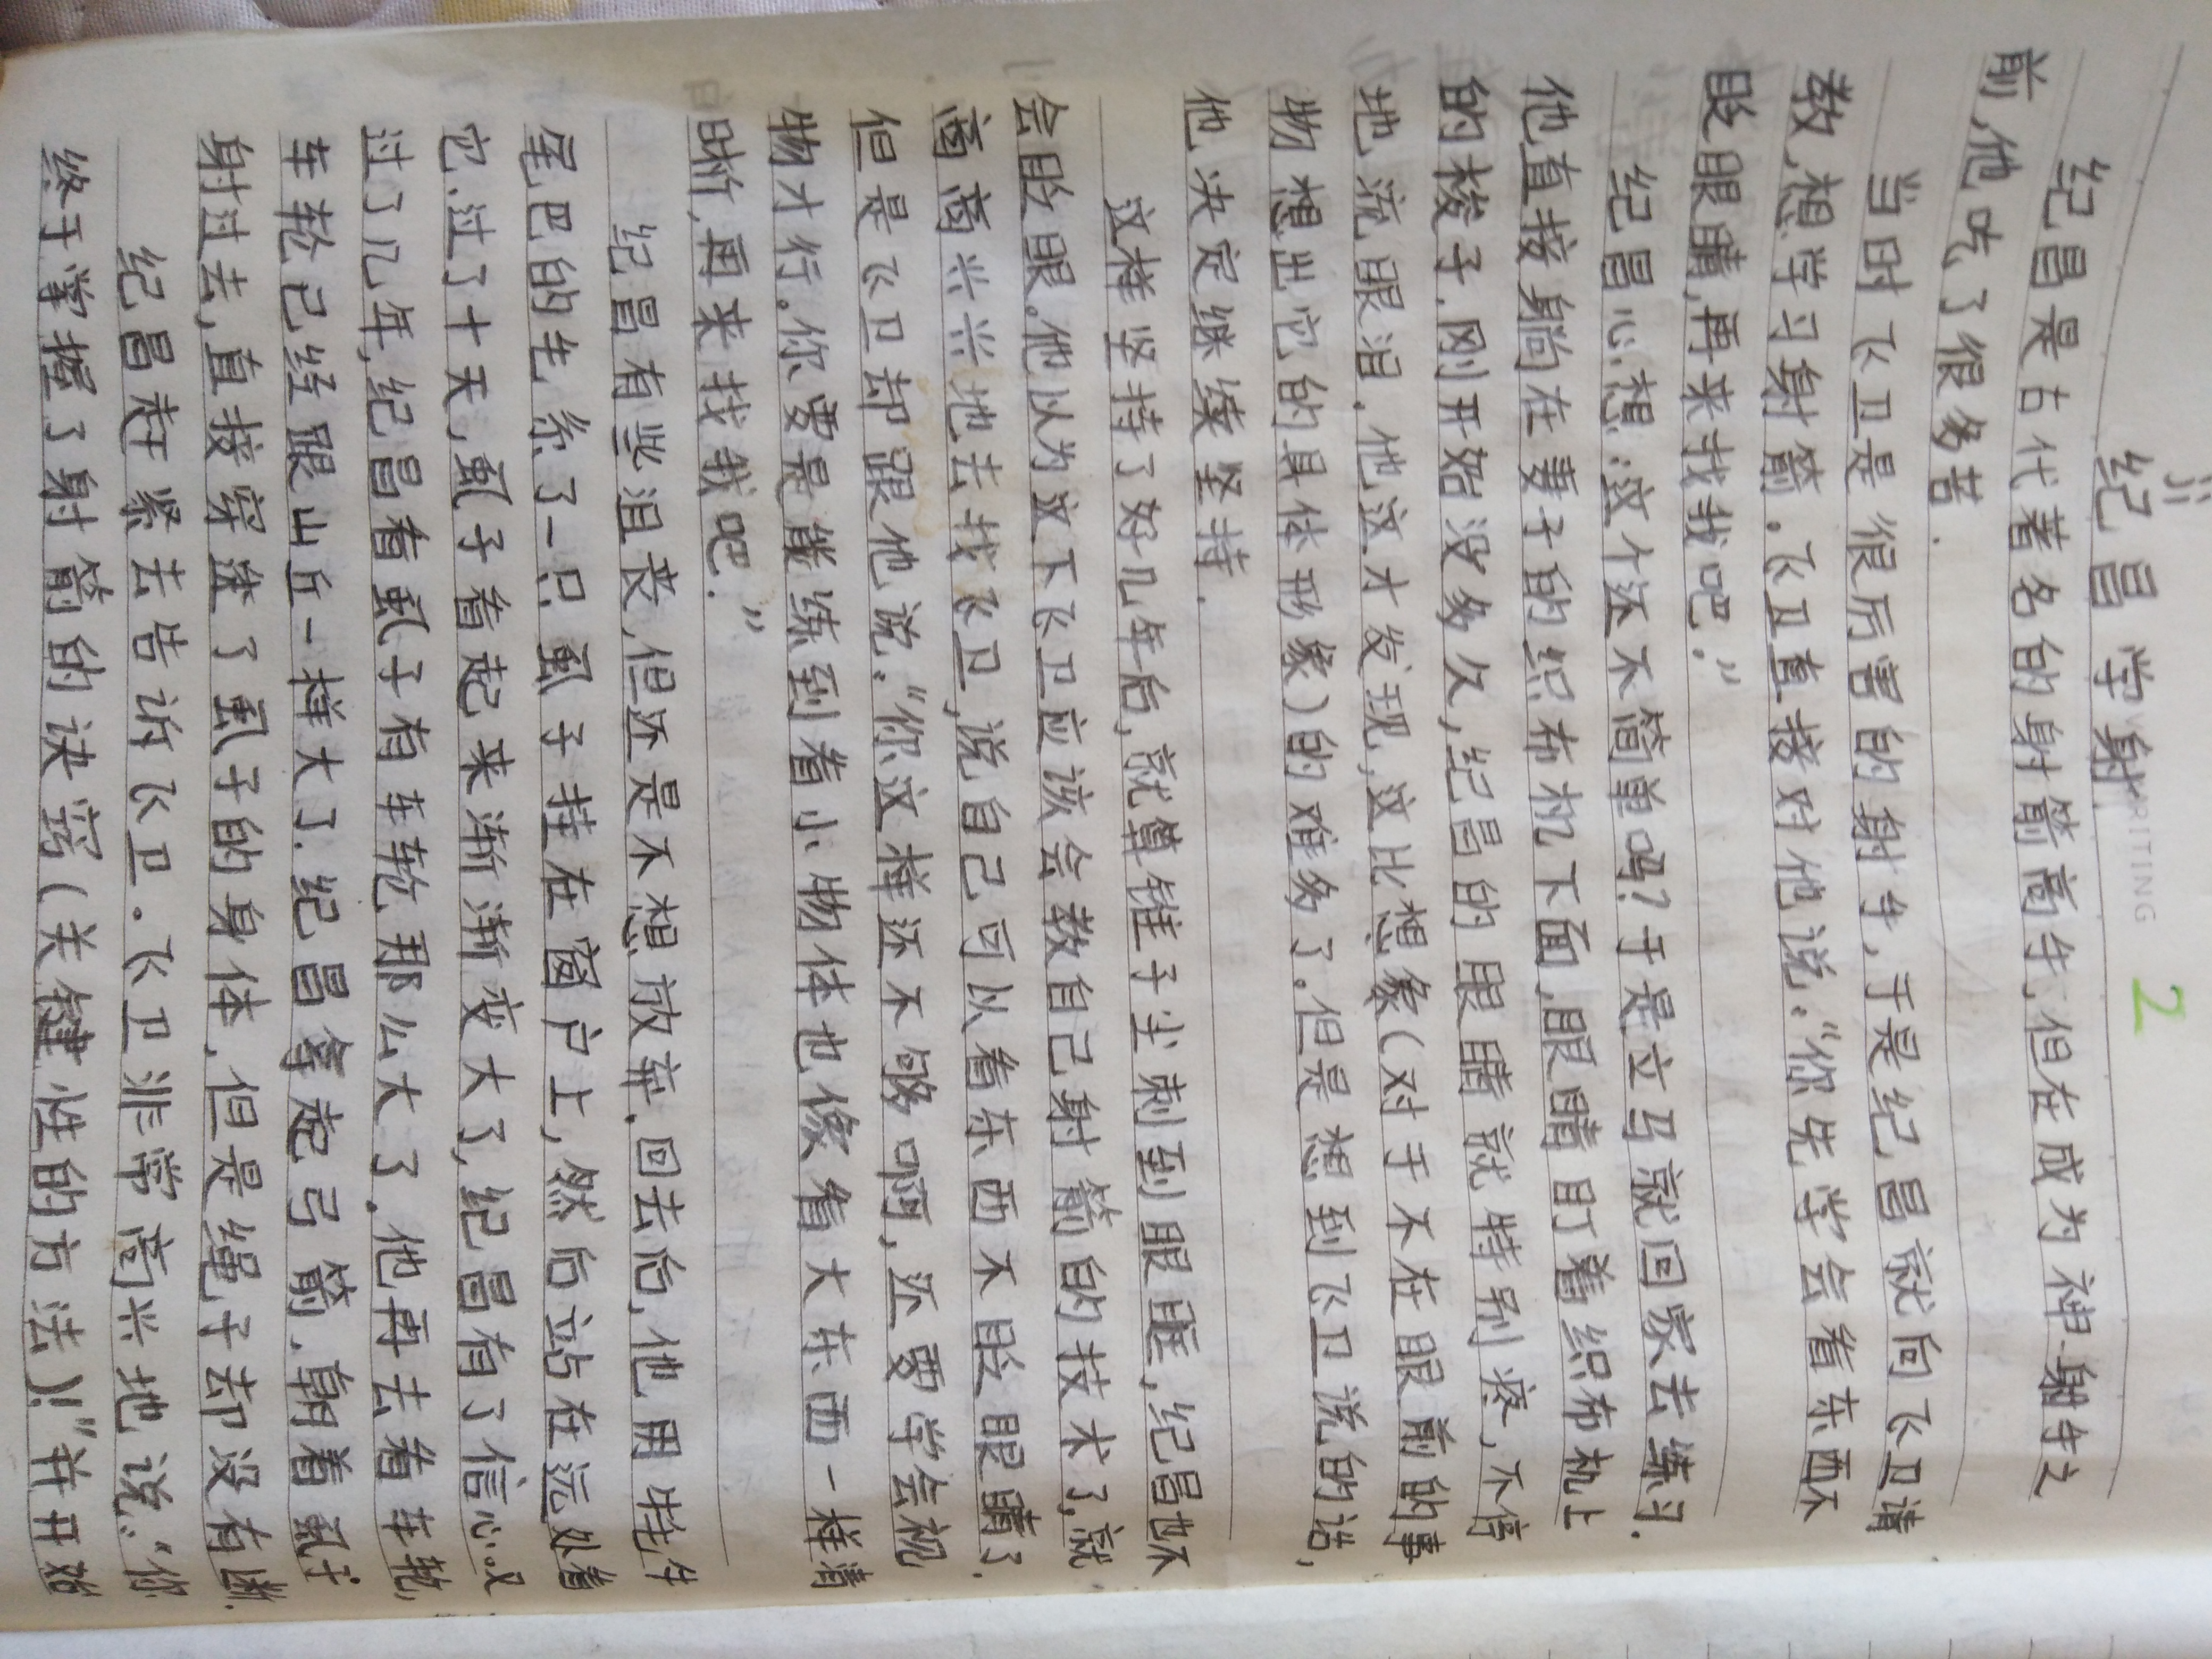 jǐ
纪昌学射
WRITING
2
纪昌是古代著名的射箭高手,但在成为神射手之
前,他吃了很多苦.
当时飞卫是很厉害的射手,于是纪昌就向飞卫请
教,想学习射箭.飞卫直接对他说:“你先学会看东西不
眨眼睛,再来找我吧.”
纪昌心想:这个还不简单吗?于是立马就回家去练习.
他直接躺在妻子的织布机下面,眼睛盯着织布机上
的梭子.刚开始没多久,纪昌的眼睛就特别疼,不停
地流眼泪,他这才发现,这比想象(对于不在眼前的事
物想出它的具体形象)的难多了.但是想到飞卫说的话,
他决定继续坚持.
这样坚持了好几年后,就算锥子尖刺到眼眶,纪昌也不
会眨眼.他以为这下飞卫应该会教自己射箭的技术了,就
高高兴兴地去找飞卫,说自己可以看东西不眨眼睛了.
但是飞卫却跟他说:“你这样还不够啊,还要学会视
物才行.你要是能练到看小物体也像看大东西一样清
晰,再来找我吧.”
纪昌有些沮丧,但还是不想放弃.回去后,他用牦牛
尾巴的毛系了一只虱子挂在窗户上,然后站在远处看
它.过了十天,虱子看起来渐渐变大了,纪昌有了信心.又
过了几年,纪昌看虱子有车轮那么大了.他再去看车轮,
车轮已经跟山丘一样大了.纪昌拿起弓箭.朝着虱子
射过去,直接穿透了虱子的身体,但是绳子却没有断.
纪昌赶紧去告诉飞卫.飞卫非常高兴地说:“你
终于掌握了射箭的诀窍(关键性的方法)!”并开始